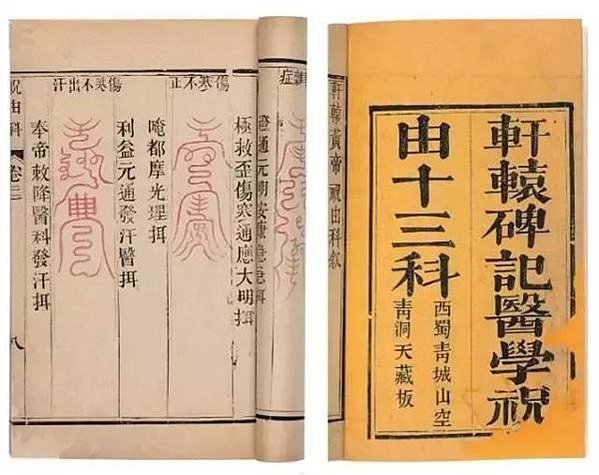 軒轅碑記醫學祝
由十三科
西蜀青城山空
青洞天藏板
軒轅黃帝祝由科敘
傷寒不正
極救歪傷突通應大明捐
唵都摩光理捐
傷寒不出汗
利益元通發汗醫捐
奉帝敕降醫科發汗捐
祝由科
卷二
八